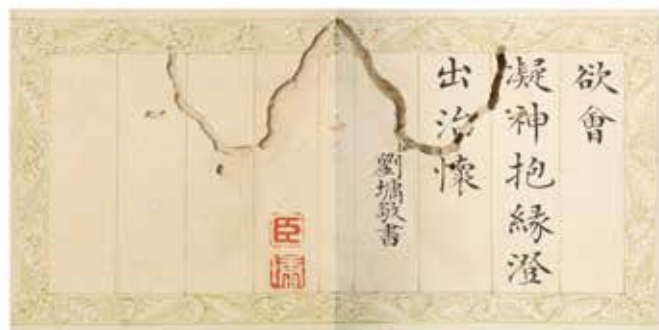 欲會
凝神抱緣澄
出治懷
劉墉敬書
臣
墉